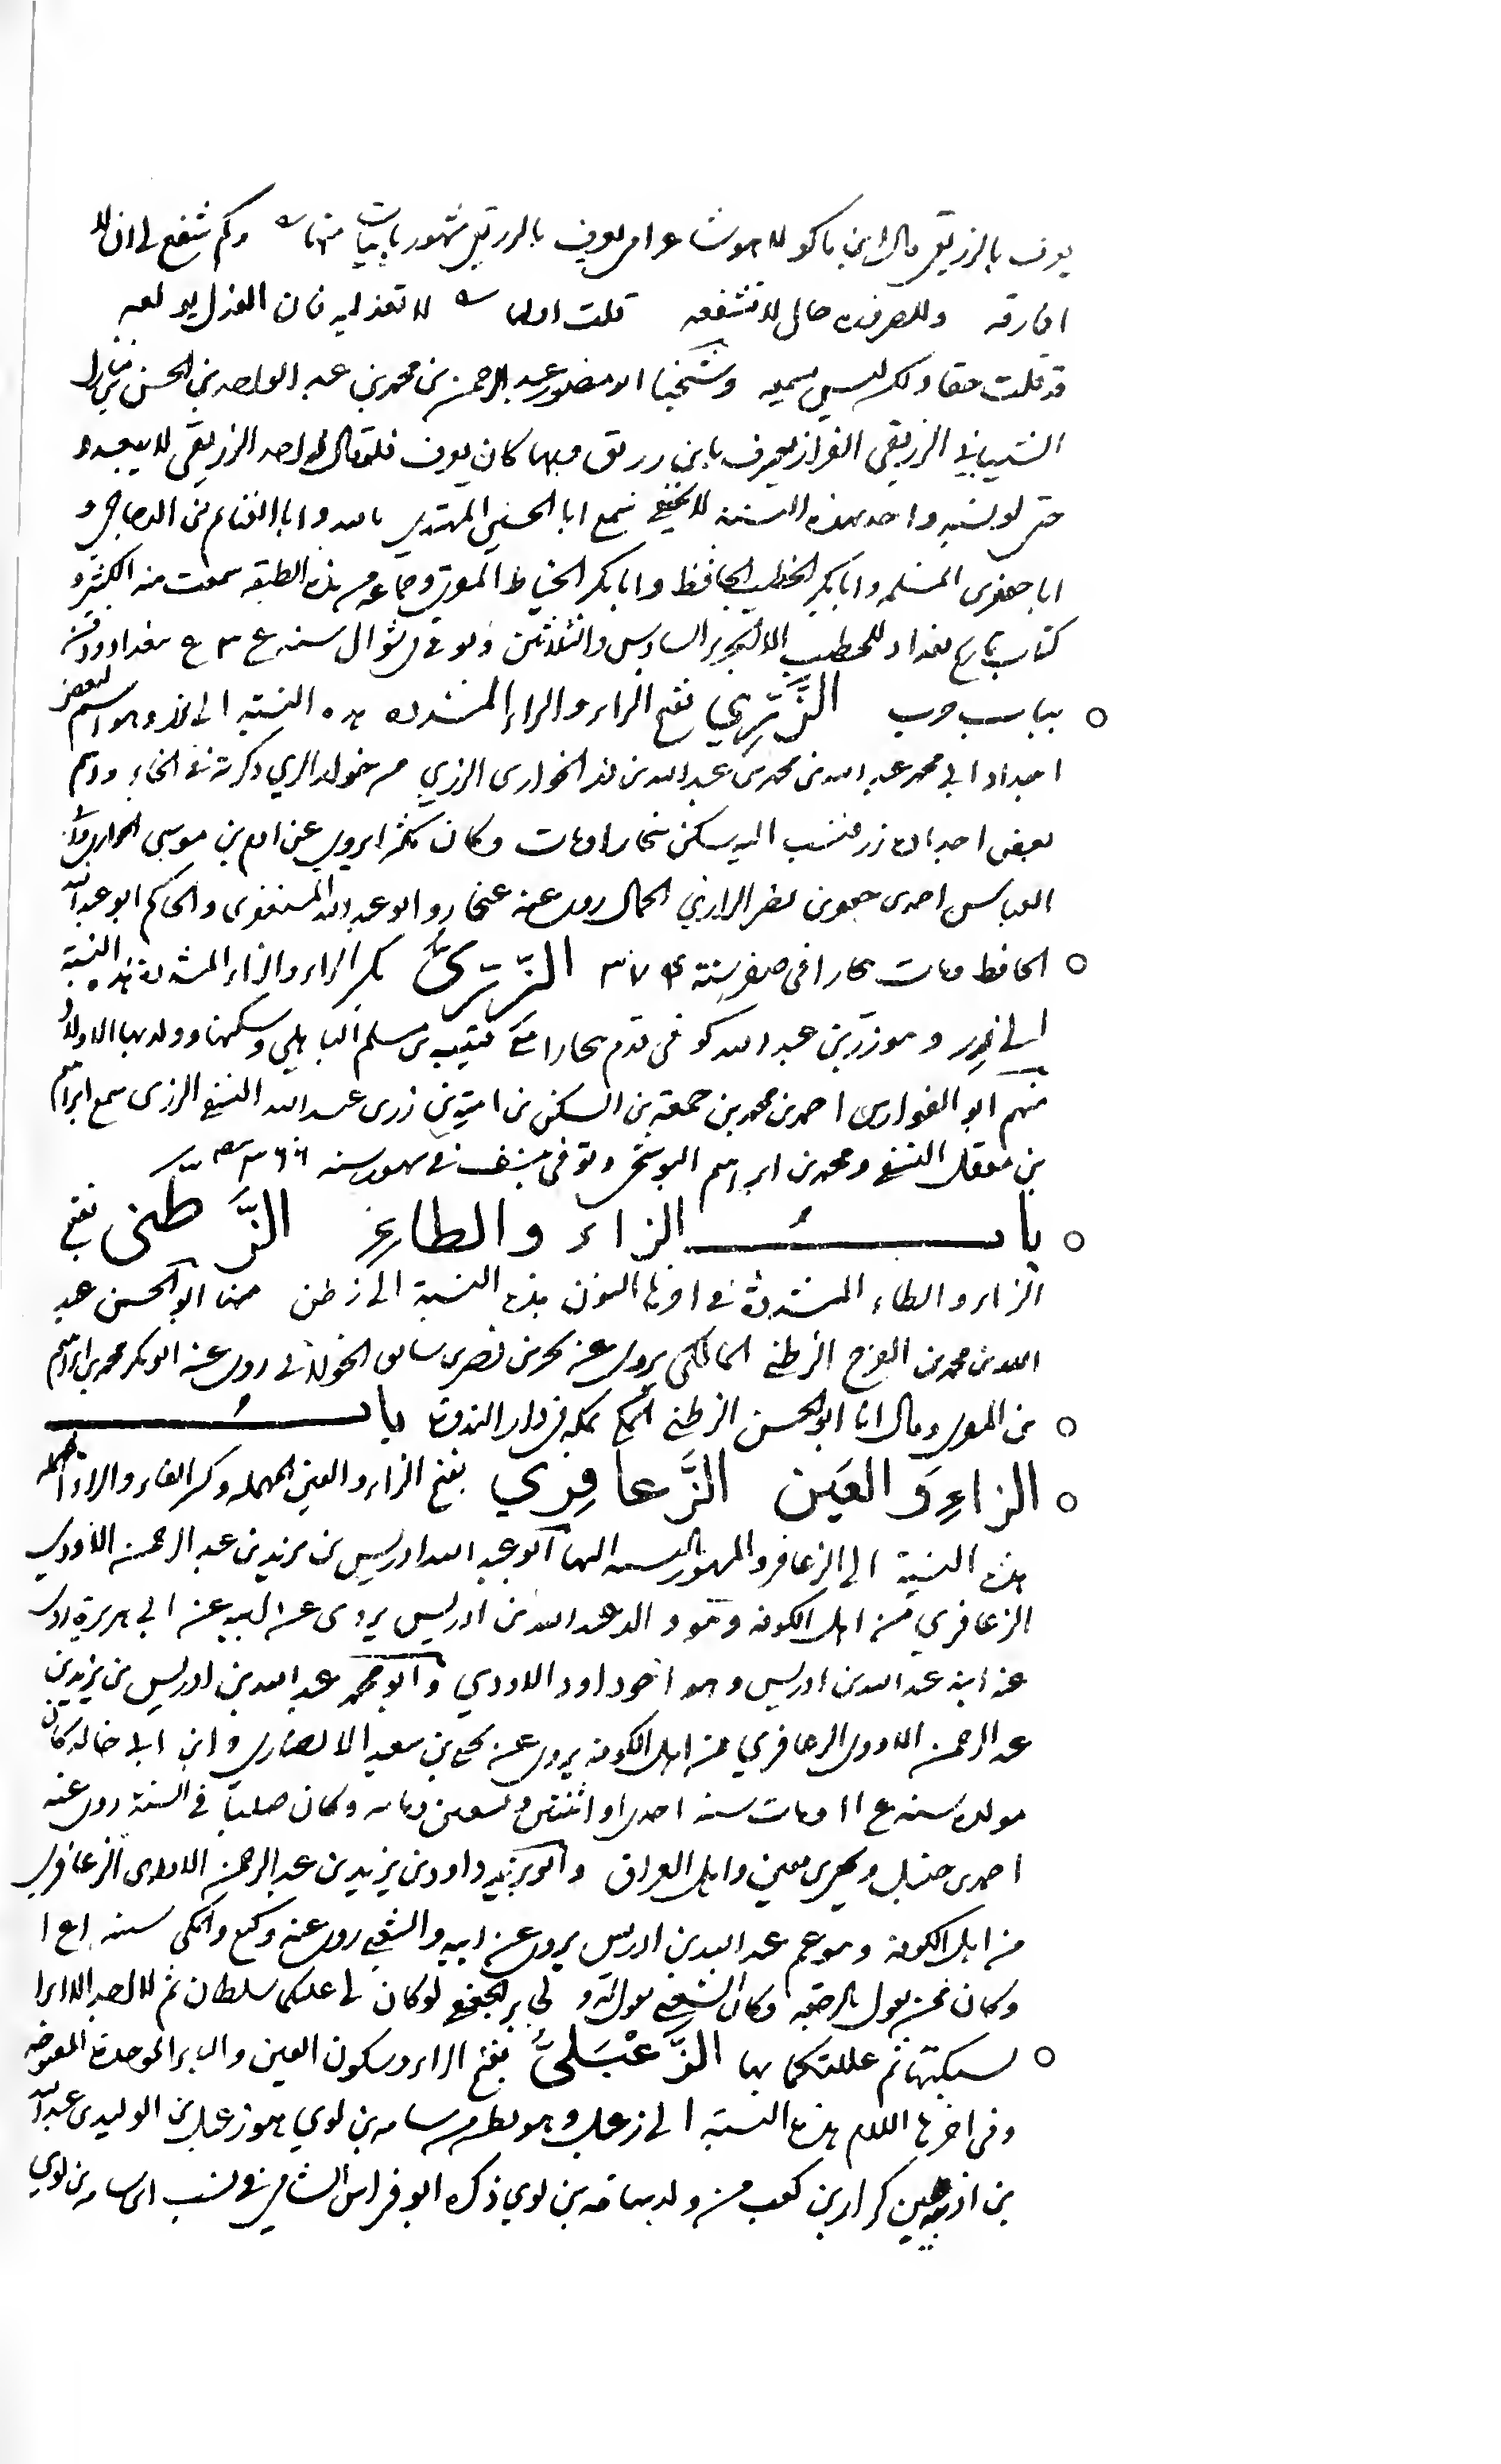 يعرف بالزريقي قال ابن ماكولا هو شاعر يعرف بالزريقي مشهور بابيات منها وكم تشفع لي ان لا
افارقه وللضرورة حال لا تشفعه قلت اولها لا تعذليه فان العذل يولعه
قد قلت حقا ولكن ليس يسمعه وشيخنا ابو منصور عبد الرحمن بن محمد بن عبد الواحد بن الحسن بن منازل
الشيباني الزريقي القزاز يعرف بابن زريق وبها كان يعرف فلو قال له احد الزريقي لا يبعد و
حتى لو نسبه واحد بهذه النسبة لا يخفى سمع ابا الحسين المهتدي بالله وابا الغنائم بن الدجاجي و
ابا جعفر بن المسلمة وابا بكر الخطيب الحافظ وابا بكر الخياط المقرئ وجماعة من هذه الطبقة سمعت منه الكثير و
كتاب تاريخ بغداد للخطيب الا الجزء السادس والثلاثين وتوفي في شوال سنة ببغداد ودفن
بباب حرب الزَّرِّي بفتح الزاء والراء المشددة هذه النسبة الى زر وهو اسم لبعض
اجداد ابي محمد عبد الله بن محمد بن عبد الله بن الخواري الزري من خوار الري ذكرته في الخاء واسم
بعض اجداده زر فنسب اليه سكن بخارا ومات وكان مكثرا يروي عن ابراهيم بن موسى
العباس احمد بن جعفر بن نصر الرازي الجمال روى عنه غنجار وابو عبد الله المستغفري والحاكم ابو عبد الله
الحافظ ومات ببخارا في صفر سنة الزِّرِّيُّ بكسر الزاء والراء المشددة هذه النسبة
الى زر وهو زر بن عبد الله كوفي قدم بخارا مع قتيبة بن مسلم الباهلي وسكنها وولد بها الاولاد
منهم ابو الفوارس احمد بن محمد بن جمعة بن السكن بن امية بن زر بن عبد الله النسفي الزري سمع ابراهيم
بن معقل النسفي ومحمد بن ابراهيم البوشنجي وتوفي بنسف في شهور سنة ٣٦٦
باب الزاء والطاء الزَّطَّني بفتح
الزاء والطاء المشددة في اخرها النون هذه النسبة الى زطن منها ابو الحسن عبد
الله بن محمد بن الفرج الزطني المالكي يروي عن بحر بن نصر بن سابق الخولاني روى عنه ابو بكر محمد بن ابراهيم
بن المقرئ وقال انا ابو الحسن الزطني بمكة في دار الندوة باب
الزاءِ وَ العَين الزَّعافِري بفتح الزاء والعين المهملة وكسر الفاء والراء المهملة
هذه النسبة الى الزعافر والمشهور بالنسبة اليها ابو عبد الله ادريس بن يزيد بن عبد الرحمن الاودي
الزعافري من اهل الكوفة وهو والد عبد الله بن ادريس يروي عن ابيه عن ابي هريرة روى
عنه ابنه عبد الله بن ادريس وهو اخو داود الاودي وابو محمد عبد الله بن ادريس بن يزيد بن
عبد الرحمن الاودي الزعافري من اهل الكوفة يروي عن يحيى بن سعيد الانصاري وابن ابي خالد كان
مولده سنة ومات سنة احدى او اثنتين وتسعين ومائة وكان صلبا في السنة روى عنه
احمد بن حنبل ويحيى بن معين واهل العراق وابو يزيد داود بن يزيد بن عبد الرحمن الاودي الزعافري
من اهل الكوفة وهو عم عبد الله بن ادريس يروي عن ابيه والشعبي روى عنه وكيع والمكي سنة
وكان ممن يقول بالرجعة وكان الشعبي يقول له ولجابر الجعفي لو كان لي عليكما سلطان ثم لم اجد الا ابرا
لسبكتها ثم غللتكما بها الزَّعْبَلِيُّ بفتح الزاء وسكون العين والباء الموحدة المفتوحة
وفي اخرها اللام هذه النسبة الى زعبل وهو بطن من سامه بن لوي هو زعبل بن الوليد بن عبد الله
بن كرار بن كعب من ولد سامه بن لوي ذكره ابو فراس الشامي في نسب بني سامه بن لوي